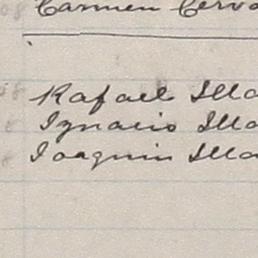 Carmen Cerva
Rafael Illa
Ignacio Illa
Joaquin Illa